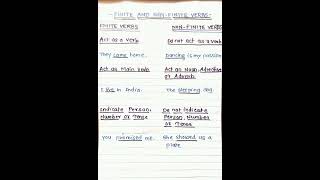 FINITE AND NON-FINITE VERBS-
FINITE VERBS NON-FINITE VERBS
Act as a verb Do not act as a verb
They came home. Dancing is my passion
Act as Main verb Act as Noun, Adjective or Adverb
I live in India. The sleeping dog.
Indicate Person, Number or Tense Do not indicate Person, Number or Tense
You promised me. She showed us a place